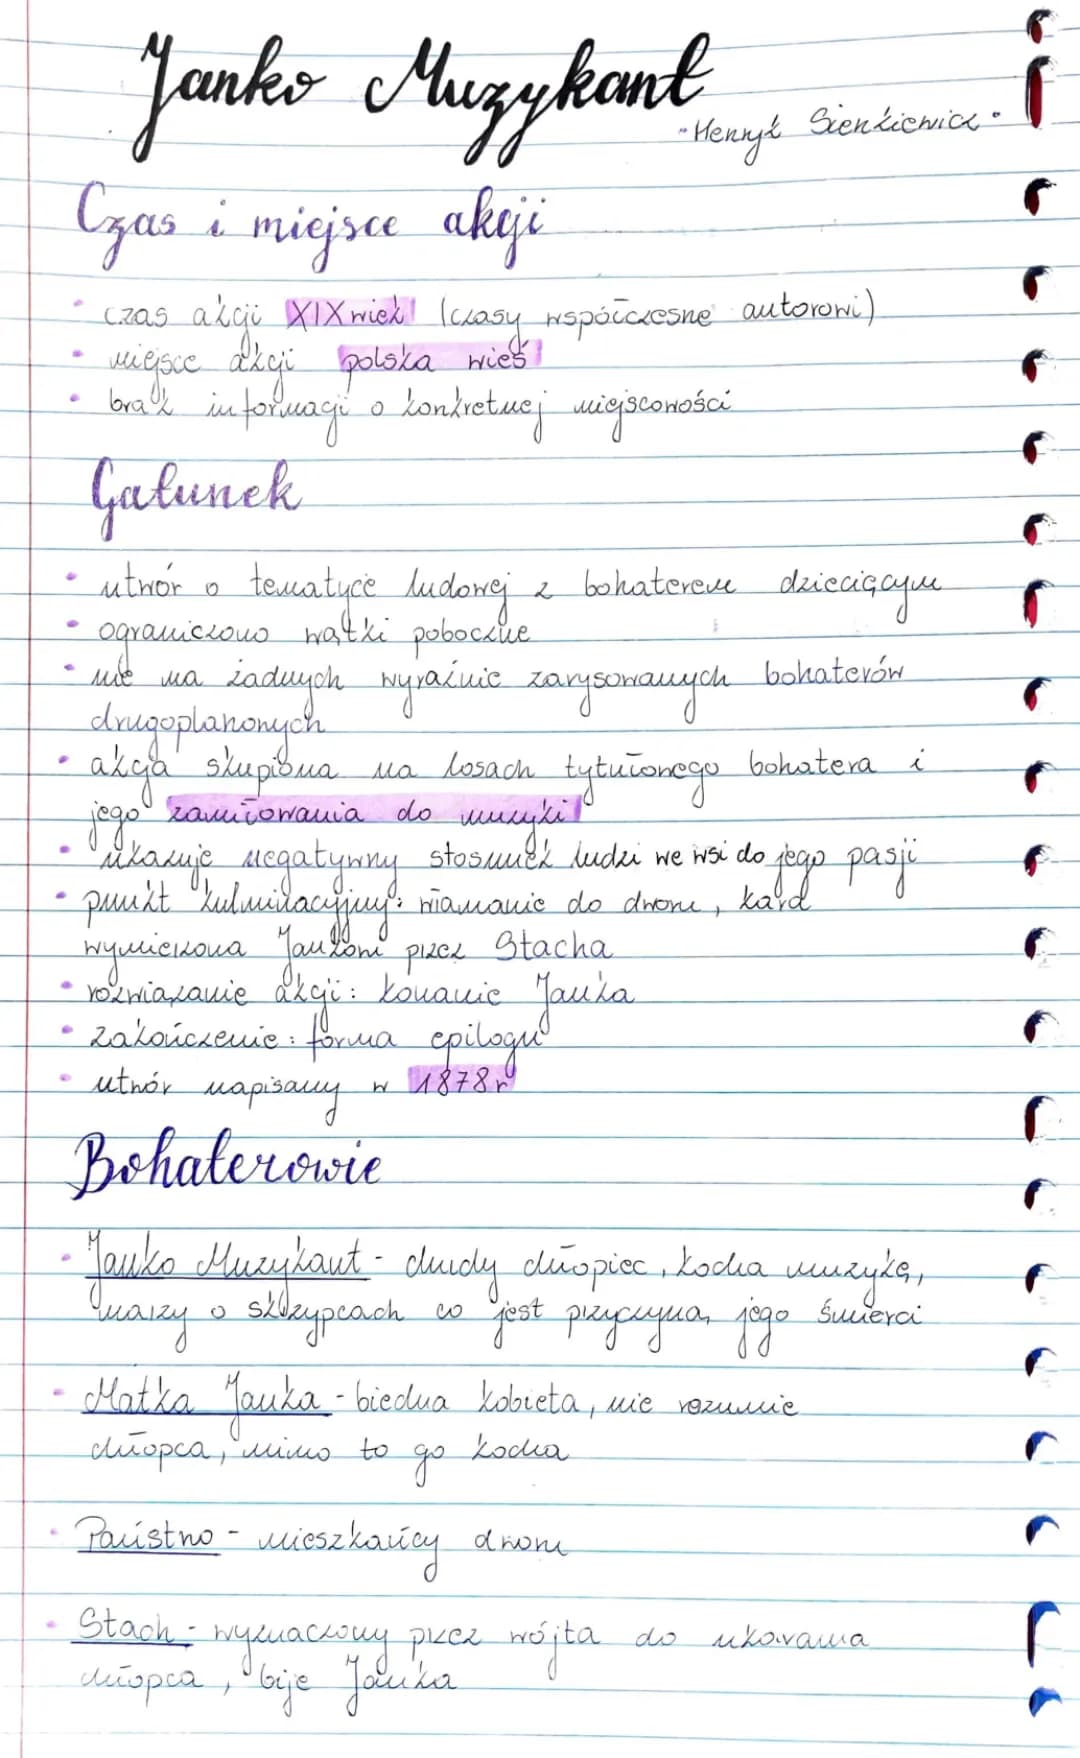 Janko Muzykant
"Henryk Sienkiewicz"
Czas i miejsce akcji
• czas akcji XIX wiek (czasy współczesne autorowi)
• miejsce akcji polska wieś
• brak informacji o konkretnej miejscowości
Gatunek
• utwór o tematyce ludowej z bohaterem dziecięcym
• ograniczono wątki poboczne
• nie ma żadnych wyraźnie zarysowanych bohaterów
drugoplanowych
• akcja skupiona na losach tytułowego bohatera i
jego zamiłowania do muzyki
• ukazuje negatywny stosunek ludzi we wsi do jego pasji
• punkt kulminacyjny: włamanie do dworu, kara
wymierzona Jankowi przez Stacha
• rozwiązanie akcji: konanie Janka
• zakończenie: forma epilogu
• utwór napisany w 1878r
Bohaterowie
• Janko Muzykant - chudy chłopiec, kocha muzykę,
marzy o skrzypcach co jest przyczyną jego śmierci
• Matka Janka - biedna kobieta, nie rozumie
chłopca, mimo to go kocha
• Państwo - mieszkańcy dworu
• Stach - wyznaczony przez wójta do ukarania
chłopca, bije Janka